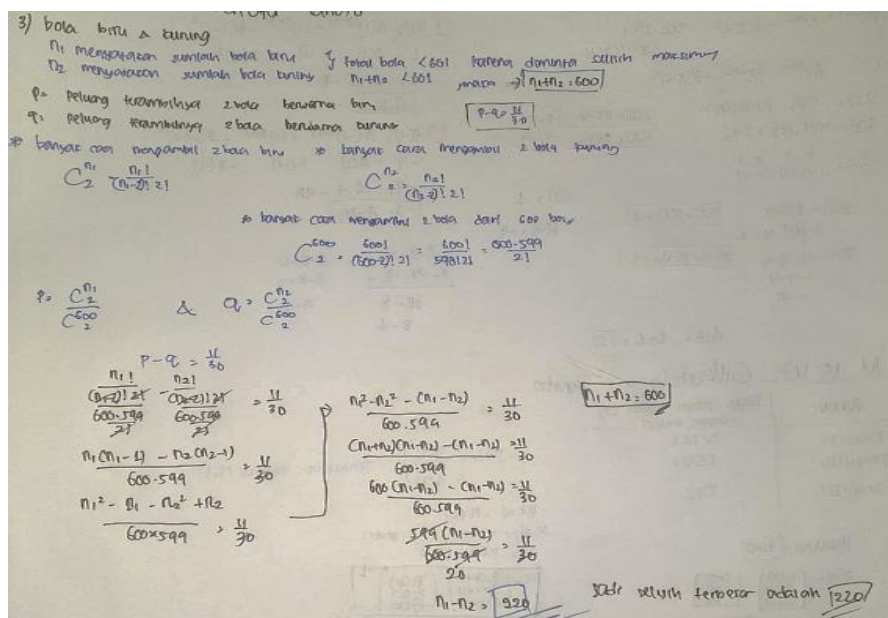 3) bola biru & kuning
n1 menyatakan jumlah bola biru } total bola < 601 karena diminta selisih maksimum
n2 menyatakan jumlah bola kuning n1+n2 < 601 maka → n1+n2 = 600
p = peluang terambilnya 2 bola berwarna biru
q = peluang terambilnya 2 bola berwarna kuning p-q = 11/30
* banyak cara mengambil 2 bola biru * banyak cara mengambil 2 bola kuning
C_2^{n1} = n1!/(n1-2)! 2! C_2^{n2} = n2!/(n2-2)! 2!
* banyak cara mengambil 2 bola dari 600 bola
C_2^{600} = 600!/(600-2)! 2! = 600!/598!2! = 600.599/2!
p = C_2^{n1}/C_2^{600} & q = C_2^{n2}/C_2^{600}
p-q = 11/30
n1!/(n1-2)! 2! / 600.599/2! - n2!/(n2-2)! 2! / 600.599/2! = 11/30
n1(n1-1) - n2(n2-1) / 600.599 = 11/30
n1² - n1 - n2² + n2 / 600×599 = 11/30
n1² - n2² - (n1-n2) / 600.599 = 11/30
n1+n2 = 600
(n1+n2)(n1-n2) - (n1-n2) / 600.599 = 11/30
600(n1-n2) - (n1-n2) / 600.599 = 11/30
599(n1-n2) / 600.599 = 11/30
20
n1-n2 = 220
Jadi selisih terbesar adalah 220